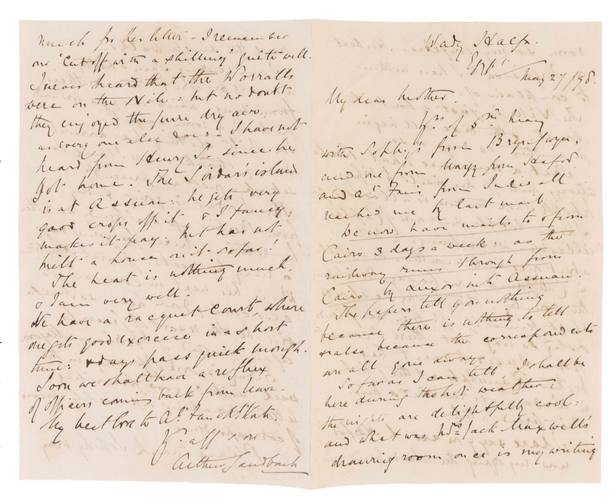 Wady Halfa.
Egypt
May 27/98.
My dear Mother.
Yrs of 5th May
with Sophy's from Brynfwyn.
and one from Mary from Hafod
and At Fan's from India all
reached me by last mail
We now have mails to & from
Cairo 3 days a week as the
railway runs through from
Cairo by Luxor into Assuan.
The papers tell you nothing
because there is nothing to tell
& also because the correspondents
are all gone away.
So far as I can tell I shall be
here during the hot weather
the nights are delightfully cool:
and what was Mrs Jack Maxwell's
drawing room once is my writing
much for her letter - I remember
one 'cut off with a shilling' quite well.
I never heard that the Worralls
were on the Nile: but no doubt
they enjoyed the pure dry air
as every one else does: I have not
heard from Henry since he
got home. The Sirdar's island
is at Assuan: he gets very
good crops off it & I fancy
makes it pay: but has not
built a house on it so far!
The heat is nothing much,
& I am very well.
We have a racquet court, where
one gets good exercise in a short
time: & days pass quick enough.
Soon we shall have a reflex
of officers coming back from leave.
My best love to At Fan & Kate.
Yr aff son
Arthur Sandbach